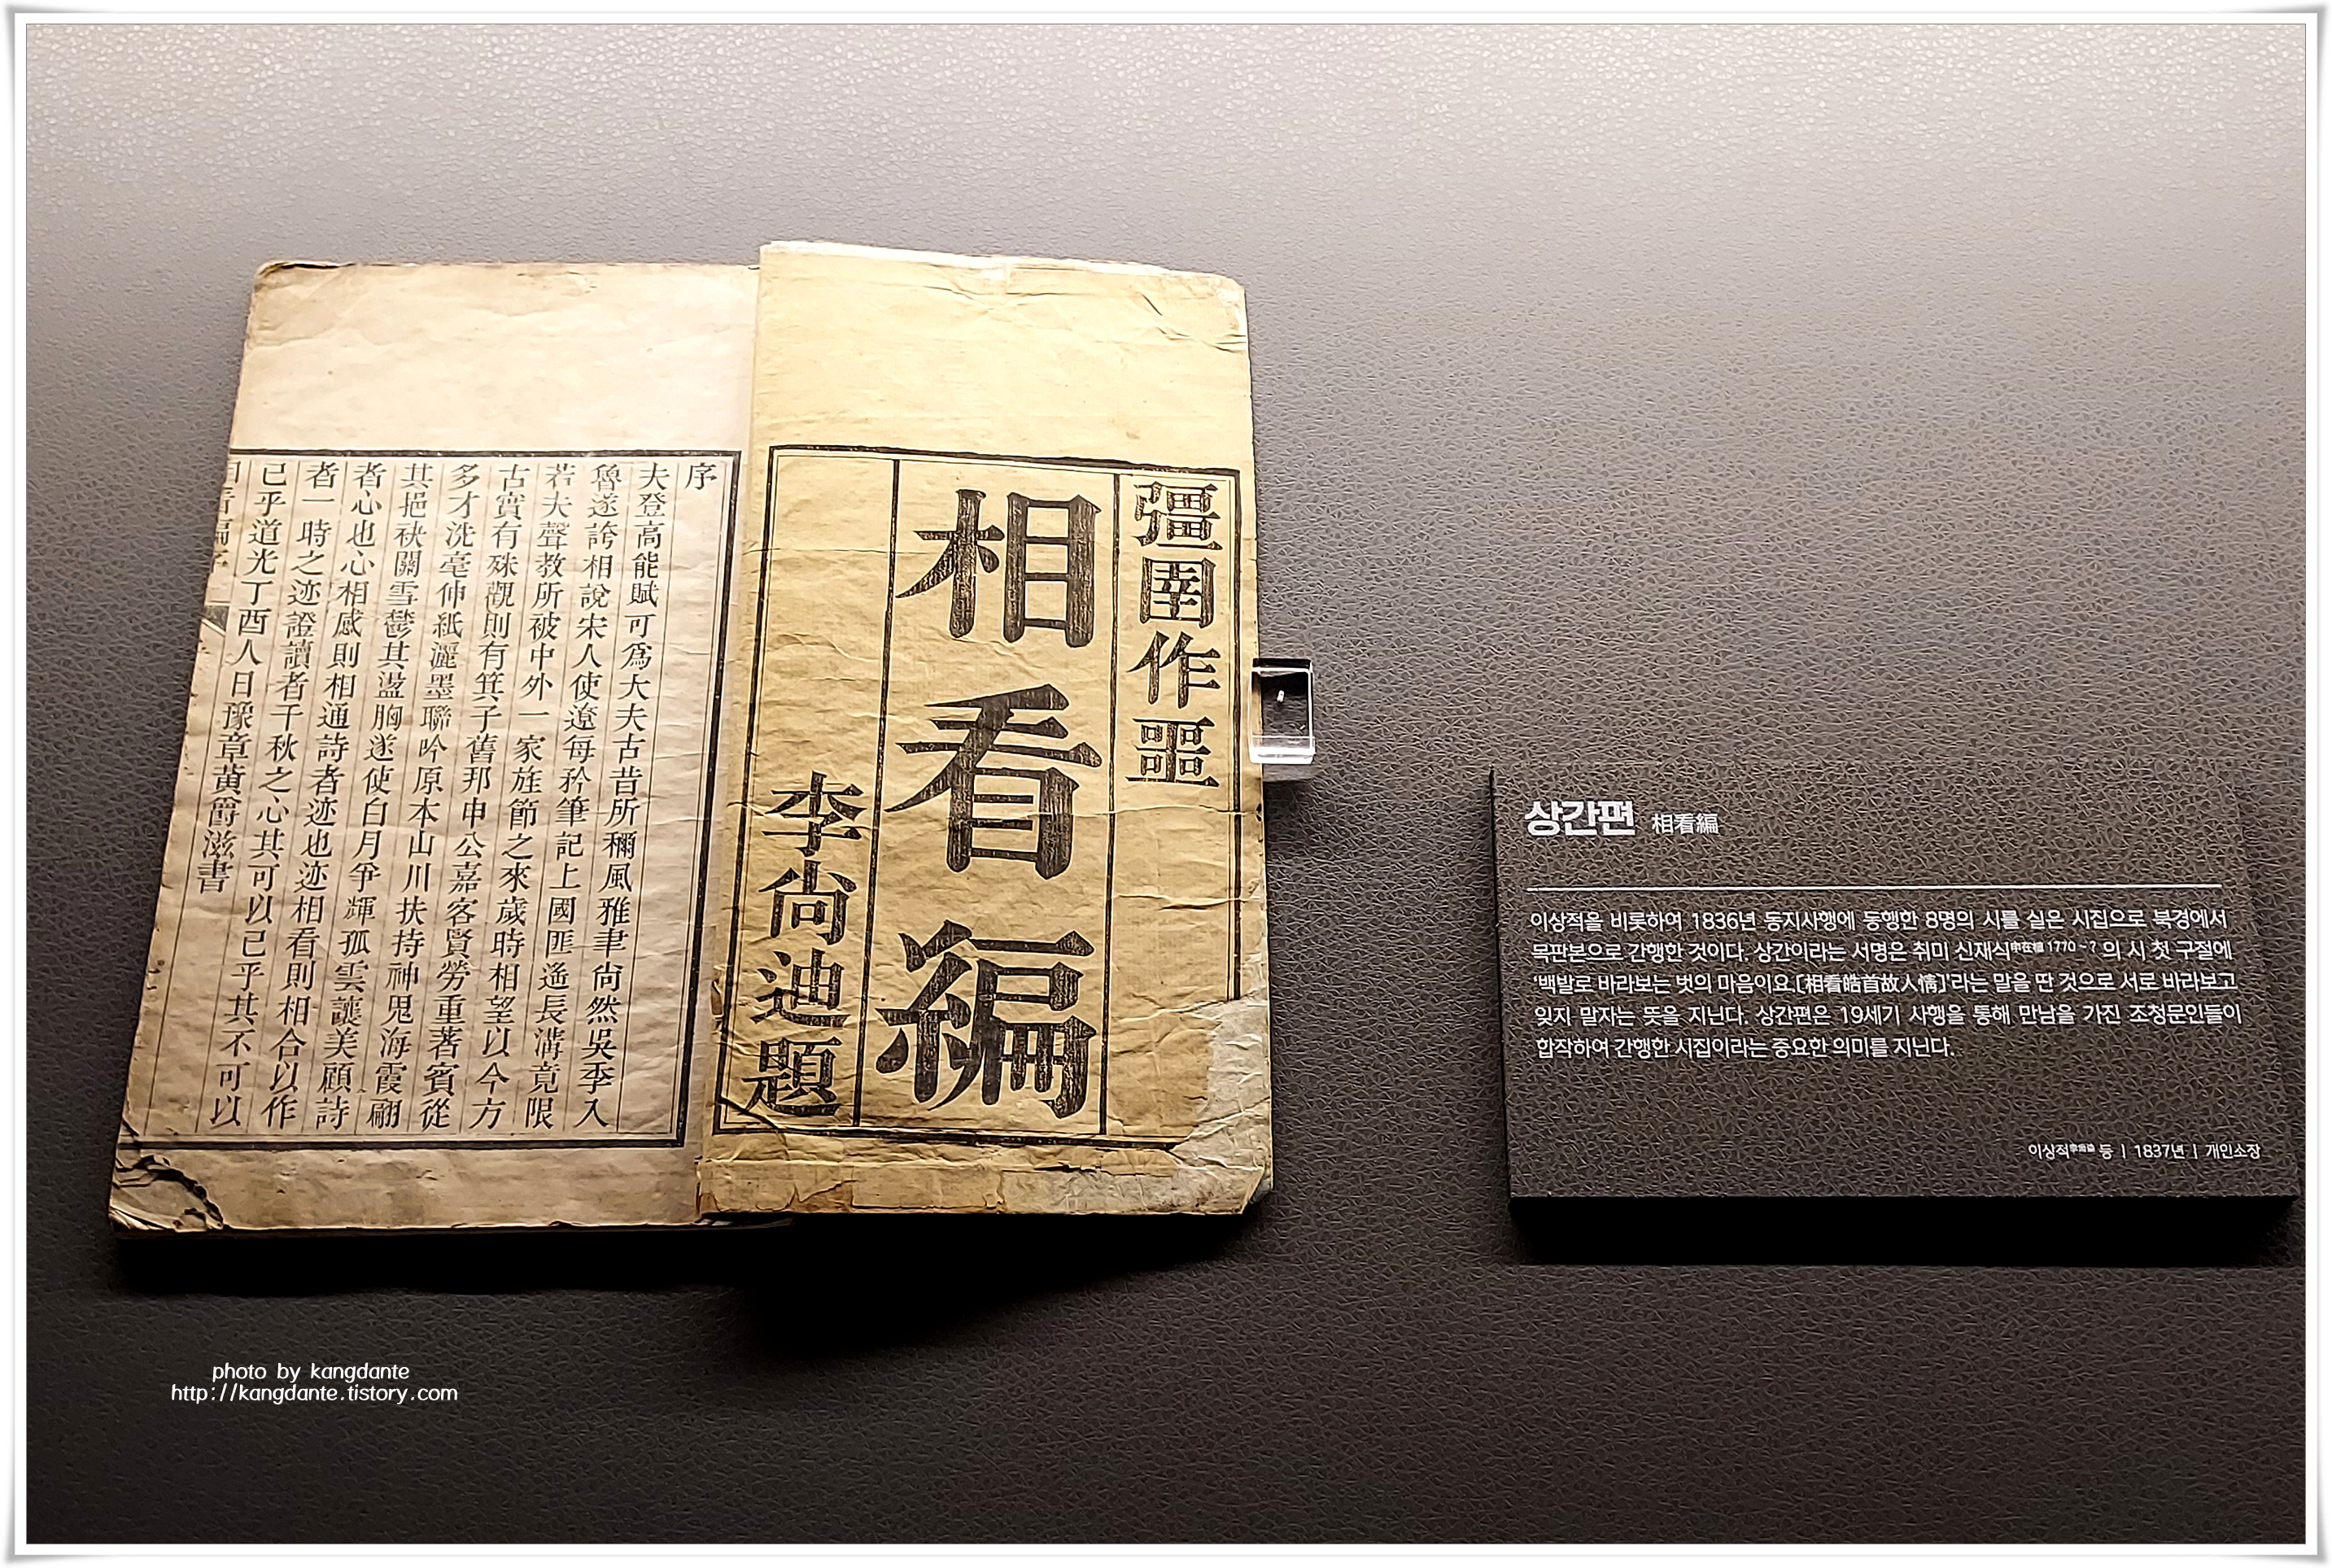 彊圉作噩
相看編
李尙迪題
序
夫登高能賦可爲大夫古昔所稱風雅聿尙然吳季入
魯遂誇相說宋人使遼每矜筆記上國匪遙長溝竟限
若夫聲教所被中外一家旌節之來歲時相望以今方
古實有殊觀則有箕子舊邦申公嘉客賢勞重著賓從
多才洗毫伸紙灑墨聯吟原本山川扶持神鬼海霞翩
其挹袂關雪鬱其盪胸遂使白月爭輝孤雲讓美顧詩
者心也心相感則相通詩者迹也迹相看則相合以作
者一時之迹證讀者千秋之心其可以已乎其不可以
已乎道光丁酉人日豫章黃爵滋書
상간편 相看編
이상적을 비롯하여 1836년 동지사행에 동행한 8명의 시를 실은 시집으로 북경에서
목판본으로 간행한 것이다. 상간이라는 서명은 취미 신재식申在植 1770 ~ ? 의 시 첫 구절에
‘백발로 바라보는 벗의 마음이요.[相看皓首故人情]’라는 말을 딴 것으로 서로 바라보고
잊지 말자는 뜻을 지닌다. 상간편은 19세기 사행을 통해 만남을 가진 조청문인들이
합작하여 간행한 시집이라는 중요한 의미를 지닌다.
이상적李尙迪 등 | 1837년 | 개인소장
photo by kangdante
http://kangdante.tistory.com